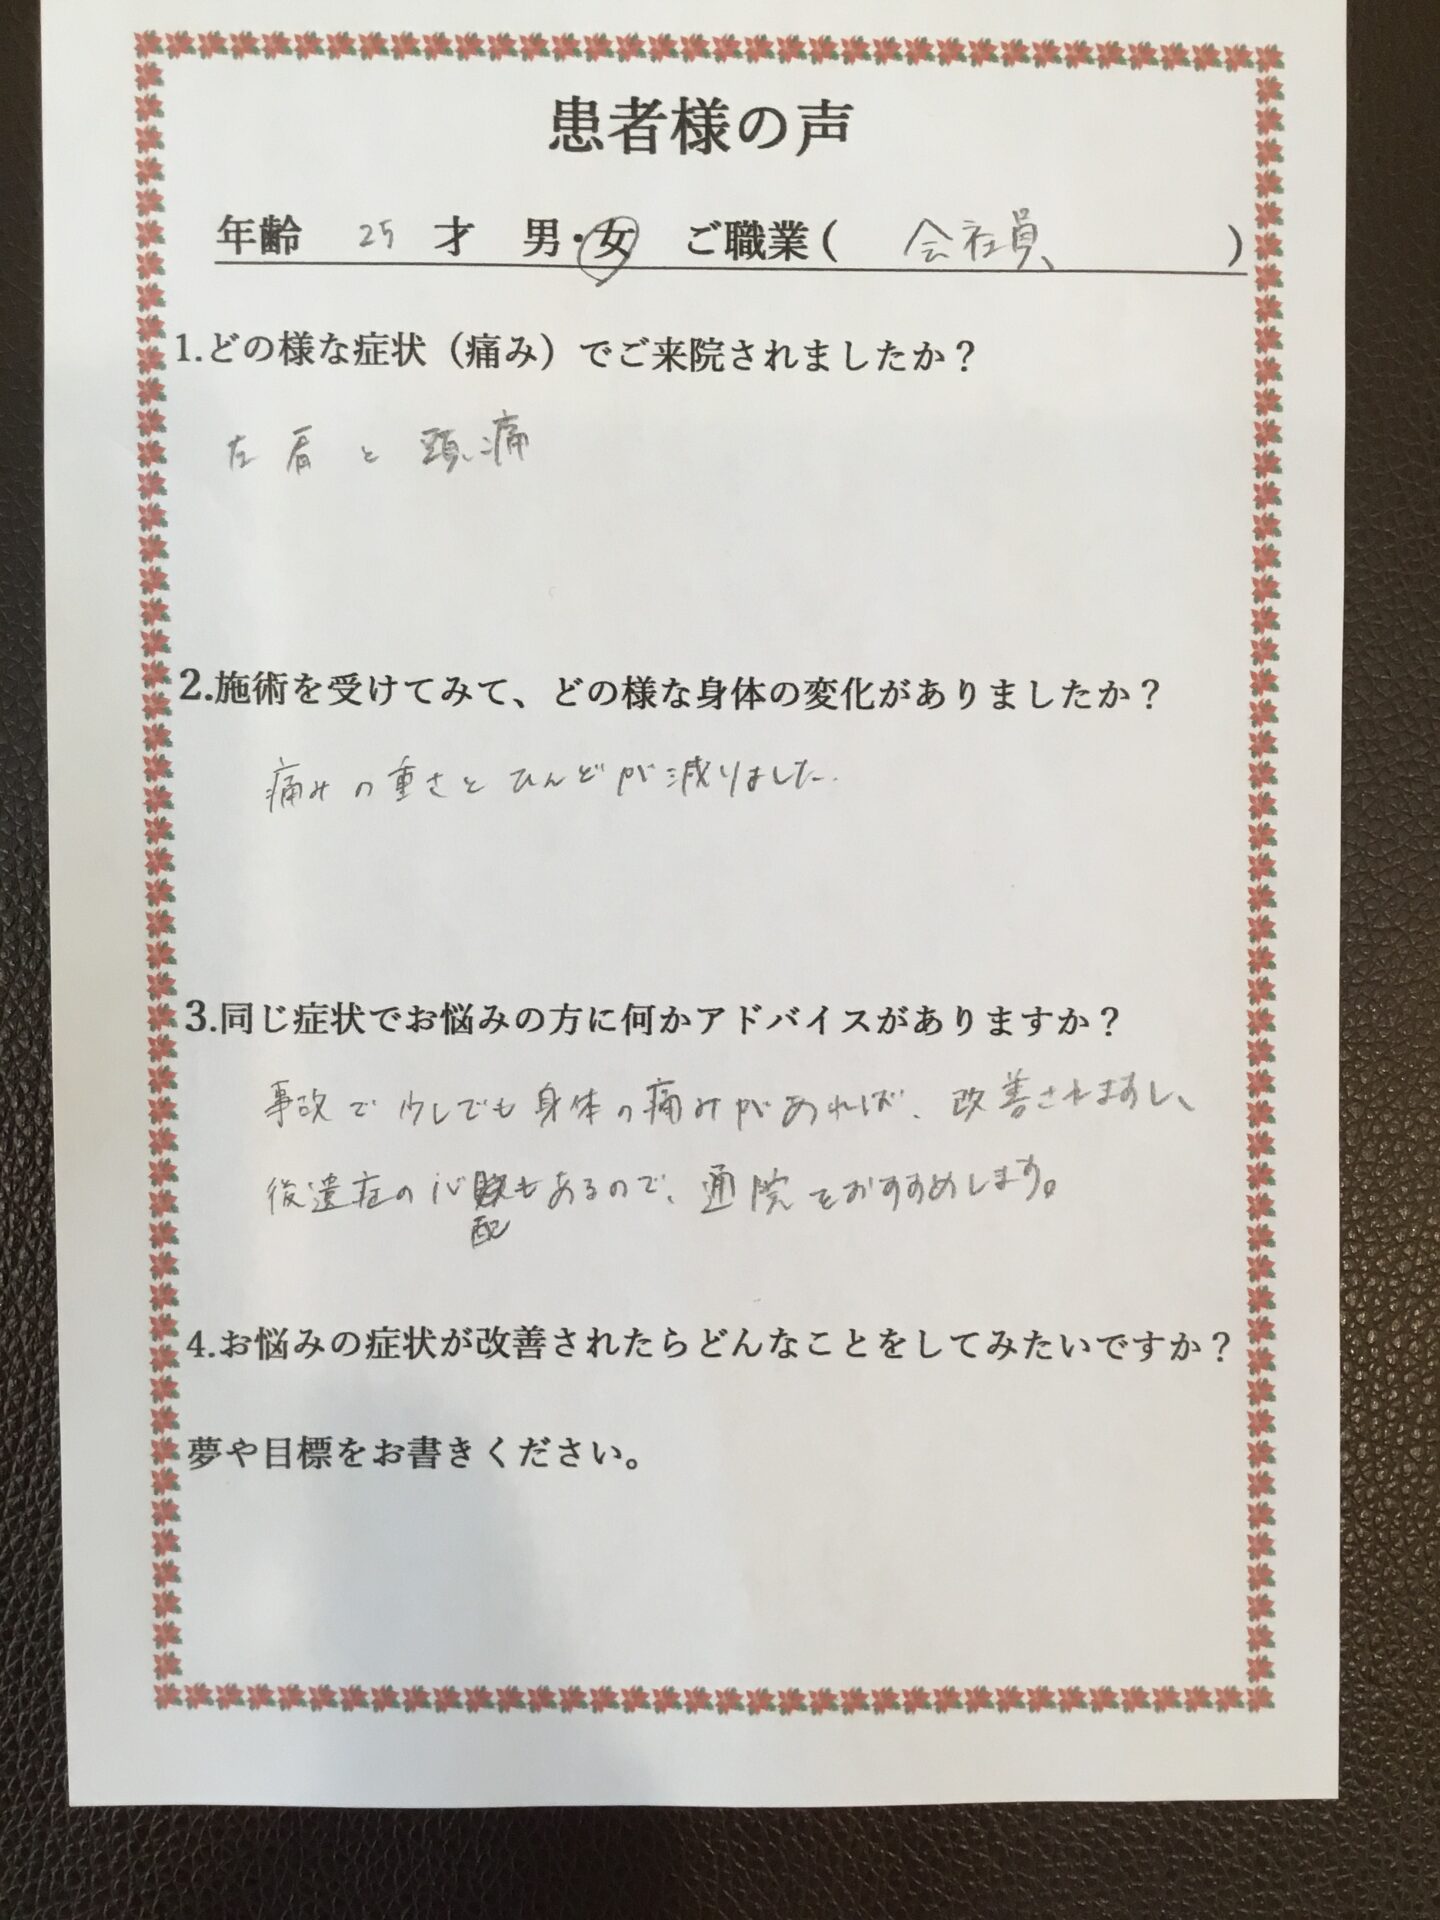 患者様の声
年齢 25 才 男・女 ご職業( 会社員 )
1.どの様な症状（痛み）でご来院されましたか？
左肩と頭痛
2.施術を受けてみて、どの様な身体の変化がありましたか？
痛みの重さとひんどが減りました.
3.同じ症状でお悩みの方に何かアドバイスがありますか？
事故で少しでも身体の痛みがあれば、改善されますし、
後遺症の心配もあるので、通院をおすすめします。
4.お悩みの症状が改善されたらどんなことをしてみたいですか？
夢や目標をお書きください。